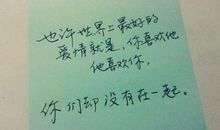 也许世界上最好的
爱情就是，你喜欢他
他喜欢你，
你们却没有在一起。